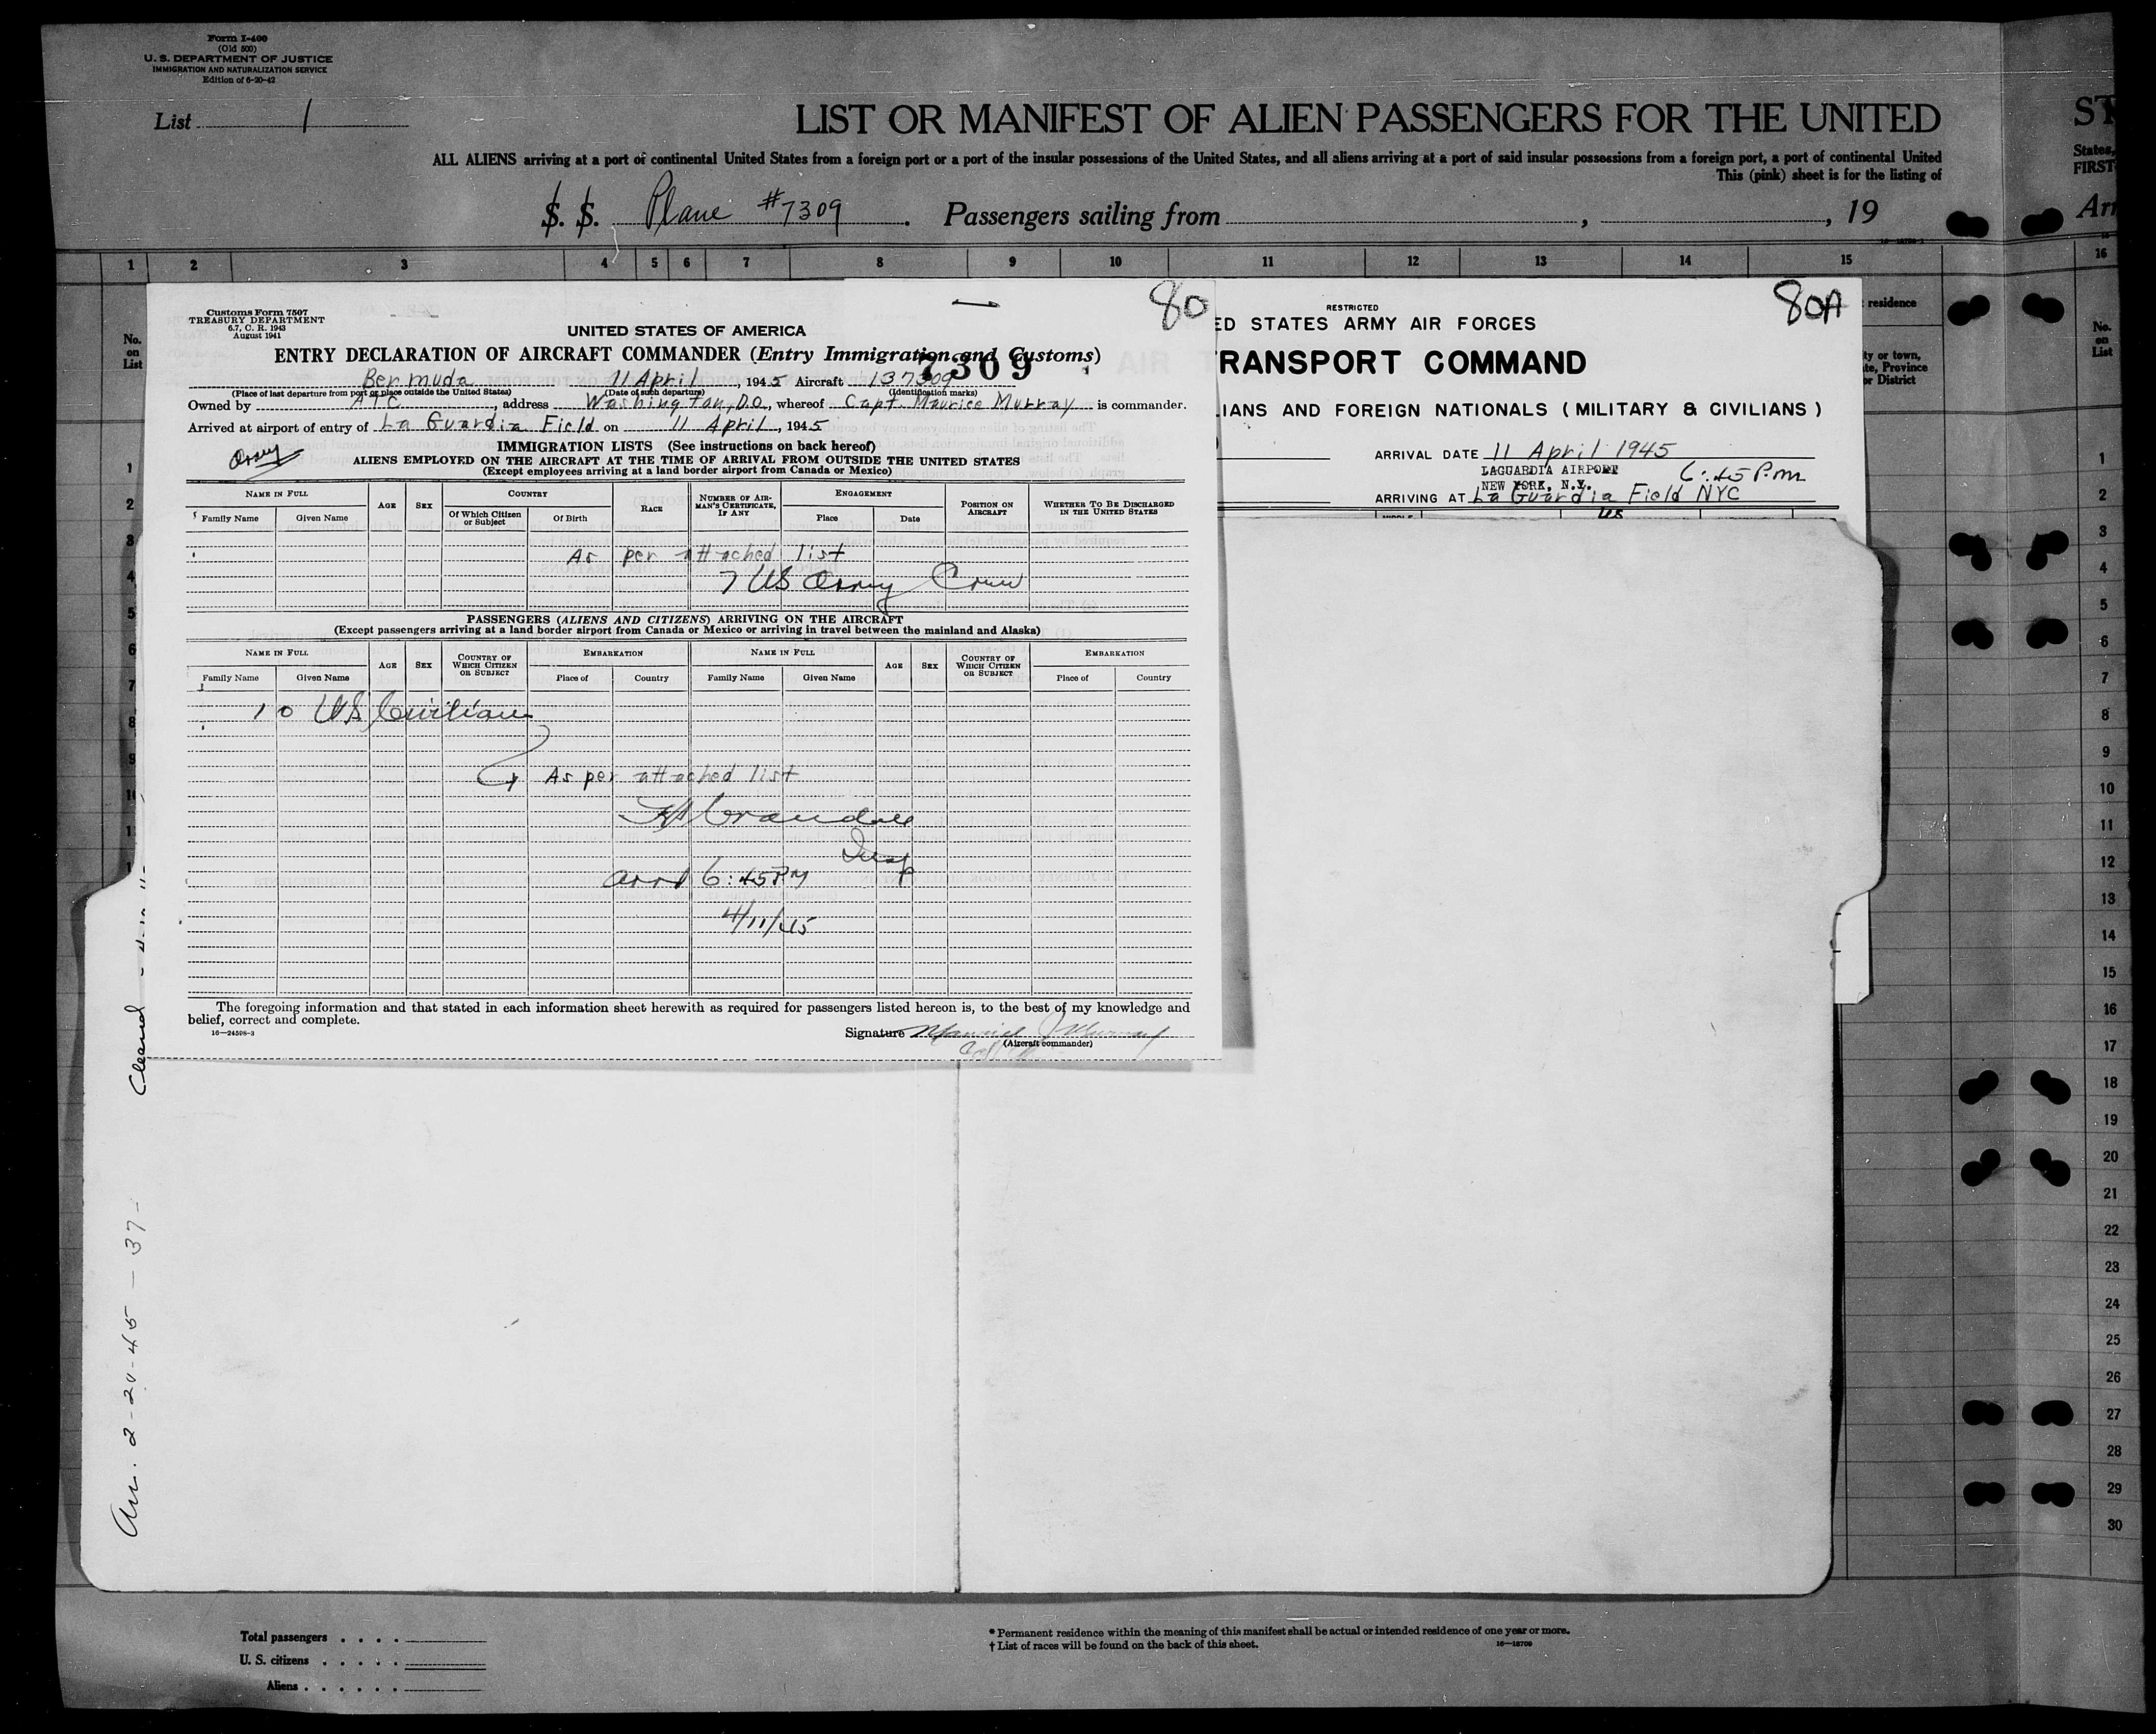 Form I-400
(Old 500)
U. S. DEPARTMENT OF JUSTICE
IMMIGRATION AND NATURALIZATION SERVICE
Edition of 6-20-42
List 1
LIST OR MANIFEST OF ALIEN PASSENGERS FOR THE UNITED
ALL ALIENS arriving at a port of continental United States from a foreign port or a port of the insular possessions of the United States, and all aliens arriving at a port of said insular possessions from a foreign port, a port of continental United
This (pink) sheet is for the listing of
S. S. Plane #7309. Passengers sailing from , , 19
ST
States,
FIRST-
Arr
1 2 3 4 5 6 7 8 9 10 11 12 13 14 15 16
No.
on
List
residence
ty or town,
te, Province
or District
No.
on
List
Customs Form 7507
TREASURY DEPARTMENT
6.7, C. R. 1943
August 1941
80
UNITED STATES OF AMERICA
ENTRY DECLARATION OF AIRCRAFT COMMANDER (Entry Immigration and Customs)
7309
Bermuda 11 April, 1945 Aircraft 137309
(Place of last departure from port or place outside the United States) (Date of such departure) (Identification marks)
Owned by ATC, address Washington, D.C., whereof Capt. Maurice Murray is commander.
Arrived at airport of entry of La Guardia Field on 11 April, 1945
Army
IMMIGRATION LISTS (See instructions on back hereof)
ALIENS EMPLOYED ON THE AIRCRAFT AT THE TIME OF ARRIVAL FROM OUTSIDE THE UNITED STATES
(Except employees arriving at a land border airport from Canada or Mexico)
NAME IN FULL AGE SEX COUNTRY RACE NUMBER OF AIRMAN'S CERTIFICATE, IF ANY ENGAGEMENT POSITION ON AIRCRAFT WHETHER TO BE DISCHARGED IN THE UNITED STATES
Family Name Given Name Of Which Citizen or Subject Of Birth Place Date
As per attached list
7 US Army Crew
PASSENGERS (ALIENS AND CITIZENS) ARRIVING ON THE AIRCRAFT
(Except passengers arriving at a land border airport from Canada or Mexico or arriving in travel between the mainland and Alaska)
NAME IN FULL AGE SEX COUNTRY OF WHICH CITIZEN OR SUBJECT EMBARKATION NAME IN FULL AGE SEX COUNTRY OF WHICH CITIZEN OR SUBJECT EMBARKATION
Family Name Given Name Place of Country Family Name Given Name Place of Country
10 US Civilians
As per attached list
Crandall
Insp
arrd 6:45 PM
4/11/45
The foregoing information and that stated in each information sheet herewith as required for passengers listed hereon is, to the best of my knowledge and
belief, correct and complete.
16—24598-3
Signature Maurice J Murray
(Aircraft commander)
80A
RESTRICTED
ED STATES ARMY AIR FORCES
TRANSPORT COMMAND
LIANS AND FOREIGN NATIONALS (MILITARY & CIVILIANS)
ARRIVAL DATE 11 April 1945
LAGUARDIA AIRPORT
NEW YORK, N.Y.
6:45 P.m
ARRIVING AT La Guardia Field NYC
US
1
2
3
4
5
6
7
8
9
10
11
12
13
14
15
16
17
18
19
20
21
22
23
24
25
26
27
28
29
30
1
2
3
4
5
6
7
8
9
Cleared
Arr. 2-20-45 — 37-
Total passengers
U. S. citizens
Aliens
* Permanent residence within the meaning of this manifest shall be actual or intended residence of one year or more.
† List of races will be found on the back of this sheet.
16—18709